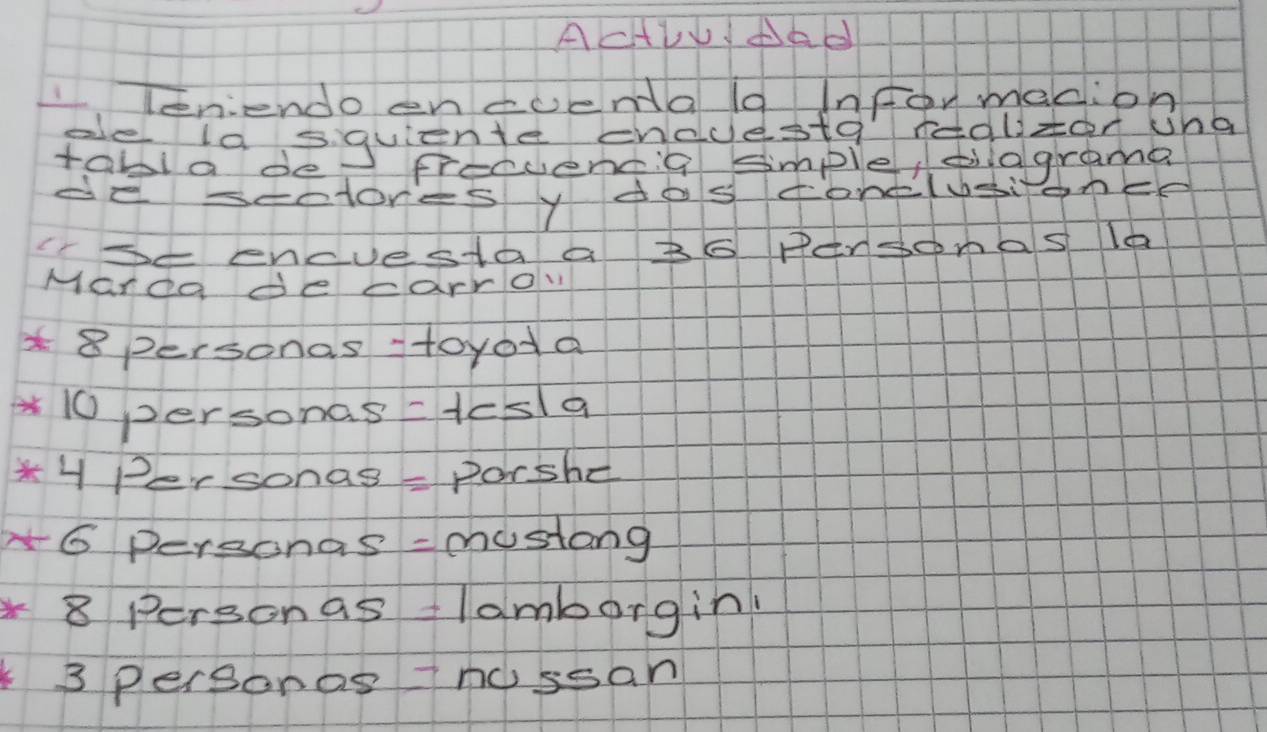 Actividad
1 Teniendo en cuenta la Informacion
de la siguiente encuesta realizar una
tabla de frecuencia simple, diagrama
de sectores y dos conclusiones
"Se encuesta a 36 Personas la
Marca de carro"
* 8 personas = toyota
* 10 personas = tesla
* 4 Personas = Porshe
* 6 personas = mustang
* 8 Personas = lamborgini
* 3 personas = nussan